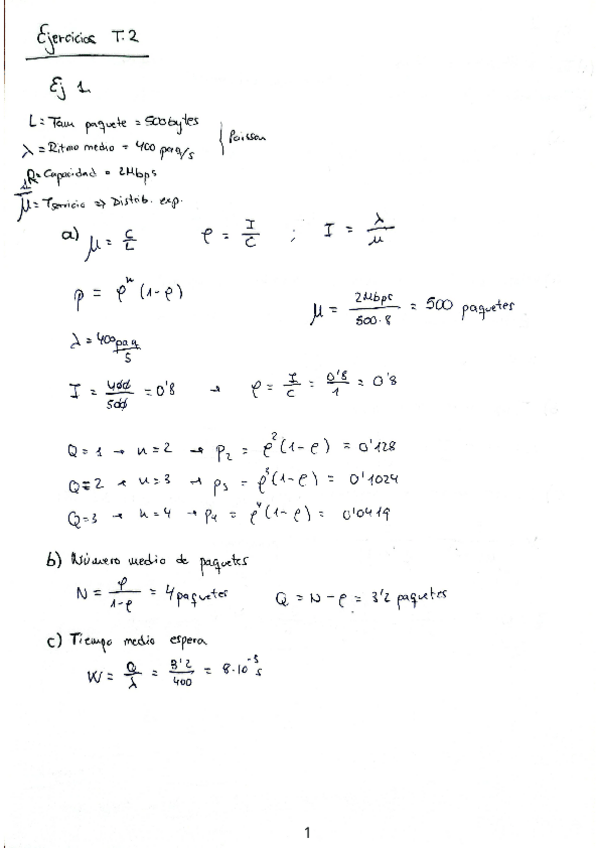 Ejercicios T.2
Ej 1.
L = Tam paquete = 500 bytes
λ = Ritmo medio = 400 paq/s } Poisson
R = Capacidad = 2Mbps
μ = Tservicio => Distrib. exp.
a) μ = C/L   ρ = I/C ; I = λ/μ
p = ρ^n (1-ρ)   μ = 2Mbps/500·8 = 500 paquetes
λ = 400 paq/s
I = 400/500 = 0'8 → ρ = I/C = 0'8/1 = 0'8
Q = 1 → n = 2 → p2 = ρ^2 (1-ρ) = 0'128
Q = 2 → n = 3 → p3 = ρ^3 (1-ρ) = 0'1024
Q = 3 → n = 4 → p4 = ρ^4 (1-ρ) = 0'0419
b) Número medio de paquetes
N = ρ/1-ρ = 4 paquetes   Q = N - ρ = 3'2 paquetes
c) Tiempo medio espera
W = Q/λ = 3'2/400 = 8·10^-3 s
1